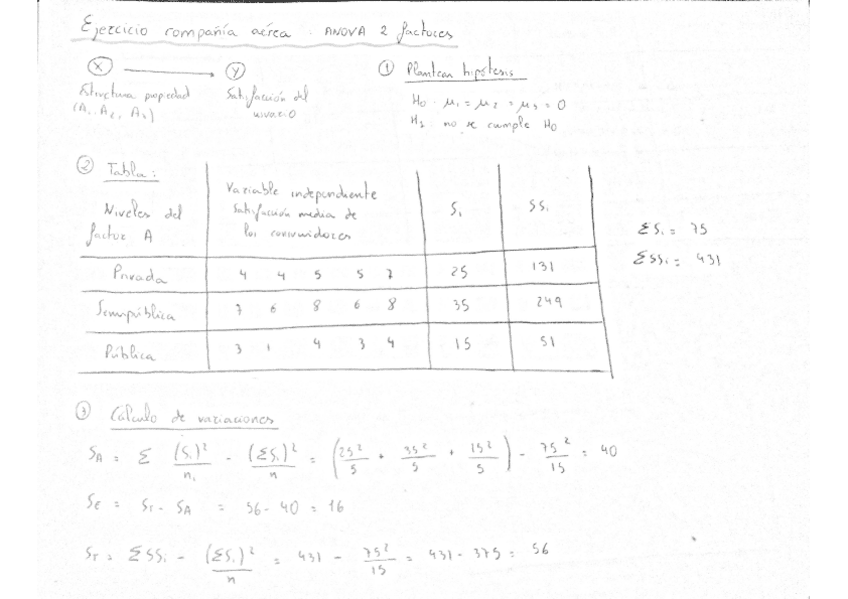 Ejercicio compañía aérea : ANOVA 2 factores
X → Y
Estructura propiedad (A₁, A₂, A₃)
Satisfacción del usuario
① Plantear hipótesis
H₀ : μ₁ = μ₂ = μ₃ = 0
H₁ : no se cumple H₀
② Tabla :
Niveles del factor A
Variable independiente
Satisfacción media de
los consumidores
Sᵢ
SSᵢ
Privada 4 4 5 5 7 25 131
Semipública 7 6 8 6 8 35 249
Pública 3 1 4 3 4 15 51
ΣSᵢ = 75
ΣSSᵢ = 431
③ Cálculo de variaciones
S_A = Σ (Sᵢ)²/nᵢ - (ΣSᵢ)²/n = (25²/5 + 35²/5 + 15²/5) - 75²/15 = 40
S_E = S_T - S_A = 56 - 40 = 16
S_T = ΣSSᵢ - (ΣSᵢ)²/n = 431 - 75²/15 = 431 - 375 = 56